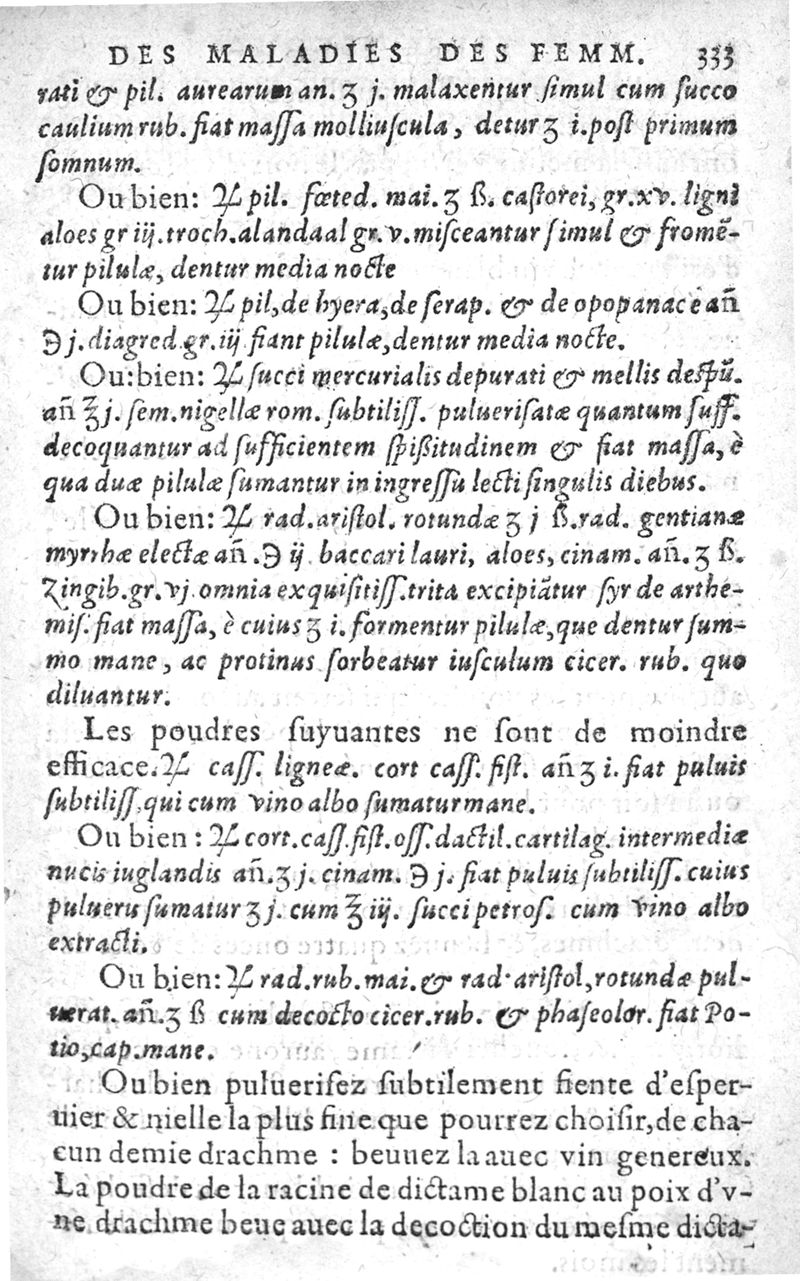 DES MALADIES DES FEMM. 333
rati & pil. aurearum an. ʒ j. malaxentur ſimul cum ſucco
caulium rub. fiat maſſa molliuſcula, detur ʒ i. poſt primum
ſomnum.
Ou bien: ♃ pil. fœted. mai. ʒ ß. caſtorei, gr. xv. ligni
aloes gr iij. troch. alandaal gr. v. miſceantur ſimul & fromẽ-
tur pilulæ, dentur media nocte
Ou bien: ♃ pil, de hyera, de ſerap. & de opopanace añ
℈ j. diagred. gr. iij fiant pilulæ, dentur media nocte.
Ou: bien: ♃ ſucci mercurialis depurati & mellis deſpũ.
añ ℥ j. ſem. nigellæ rom. ſubtiliſſ. pulueriſatæ quantum ſuff.
decoquantur ad ſufficientem ſpißitudinem & fiat maſſa, è
qua duæ pilulæ ſumantur in ingreſſu lecti ſingulis diebus.
Ou bien: ♃ rad. ariſtol. rotundæ ʒ j ß. rad. gentianæ
myrrhæ electæ añ. ℈ ij baccari lauri, aloes, cinam. añ. ʒ ß.
Zingib. gr. vj. omnia exquiſitiſſ. trita excipiãtur ſyr de arthe-
miſ. fiat maſſa, è cuius ʒ i. formentur pilulæ, que dentur ſum-
mo mane, ac protinus ſorbeatur iuſculum cicer. rub. quo
diluantur.
Les poudres ſuyuantes ne ſont de moindre
efficace. ♃ caſſ. ligneæ. cort caſſ. fiſt. añ ʒ i. fiat puluis
ſubtiliſſ. qui cum vino albo ſumatur mane.
Ou bien : ♃ cort. caſſ. fiſt. oſſ. dactil. cartilag. intermediæ
nucis iuglandis añ. ʒ j. cinam. ℈ j. fiat puluis ſubtiliſſ. cuius
pulueris ſumatur ʒ j. cum ℥ iij. ſucci petroſ. cum vino albo
extracti.
Ou bien: ♃ rad. rub. mai. & rad. ariſtol, rotundæ pul-
uerat. añ. ʒ ß cum decocto cicer. rub. & phaſeolor. fiat Po-
tio, cap. mane.
Ou bien pulueriſez ſubtilement fiente d'eſper-
uier & nielle la plus fine que pourrez choiſir, de cha-
cun demie drachme : beuuez la auec vin genereux.
La poudre de la racine de dictame blanc au poix d'v-
ne drachme beue auec la decoction du meſme dicta-